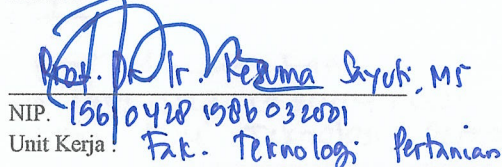 Prof. Dr. Ir. Kesuma Sayuti, MS
NIP. 19610428 198603 2001
Unit Kerja : Fak. Teknologi Pertanian